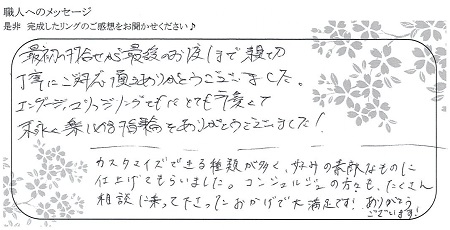 職人へのメッセージ
是非 完成したリングのご感想をお聞かせください♪
最初の打合せから最後のお渡しまで親切
丁寧にご対応頂きありがとうございました。
エンゲージ、マリッジリングともにとても可愛くて
末永く楽しめる指輪をありがとうございました!
カスタマイズできる種類が多く、好みの素敵なものに
仕上げてもらいました。コンシェルジュの方々も、たくさん
相談に乗って下さったおかげで大満足です!ありがとう
ございます!